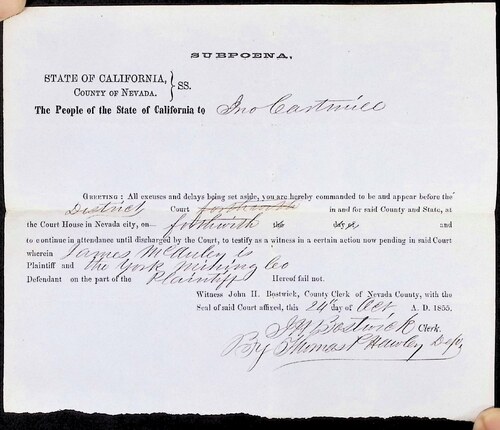 SUBPOENA.
STATE OF CALIFORNIA, } SS.
COUNTY OF NEVADA.
The People of the State of California to Jno Cartmill
GREETING: All excuses and delays being set aside, you are hereby commanded to be and appear before the
District Court forthwith in and for said County and State, at
the Court House in Nevada city, on forthwith the day and
to continue in attendance until discharged by the Court, to testify as a witness in a certain action now pending in said Court
wherein James McAuley is
Plaintiff and the York Mining Co
Defendant on the part of the Plaintiff Hereof fail not.
Witness John H. Bostwick, County Clerk of Nevada County, with the
Seal of said Court affixed, this 24th day of Oct A. D. 1855.
J H Bostwick Clerk.
By Thomas P Hawley Depy